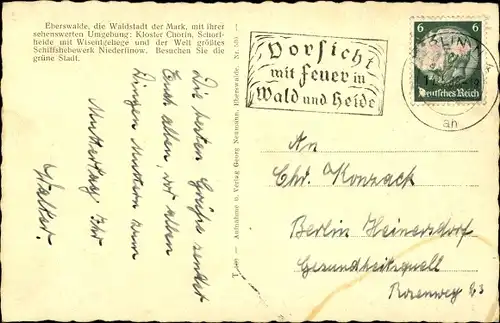 Eberswalde, die Waldstadt der Mark, mit ihrer
sehenswerten Umgebung: Kloster Chorin, Schorf-
heide mit Wisentgehege und der Welt größtes
Schiffshebewerk Niederfinow. Besuchen Sie die
grüne Stadt.
Die besten Grüße sendet
Euch allen vor allem
Mutti zum
Muttertag Ihr
Walter.
Aufnahme u. Verlag Georg Neumann, Eberswalde. Nr.
Vorsicht
mit Feuer in
Wald und Heide
6 6
Deutsches Reich
BERLIN
an
An
Chr. Konzack
Berlin Heinersdorf
Gesundheitsquell
Rosenweg 63